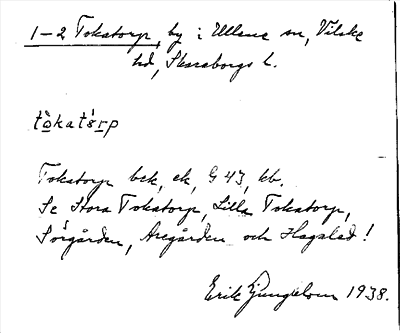 1-2 Tokatorp, by i Ullene sn, Vilske
hd, Skaraborgs l.
tòkatårp
Tokatorp bek, ek, G 43, kb.
Se Stora Tokatorp, Lilla Tokatorp,
Sörgården, Aregården och Hagaled!
Erik Ljungblom 1938.